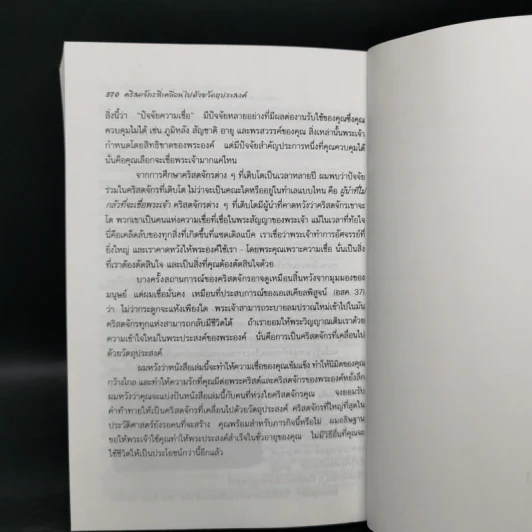 570 คริสตจักรที่เคลื่อนไปด้วยวัตถุประสงค์
สิ่งนี้ว่า "ปัจจัยความเชื่อ" มีปัจจัยหลายอย่างที่มีผลต่องานรับใช้ของคุณซึ่งคุณ
ควบคุมไม่ได้ เช่น ภูมิหลัง สัญชาติ อายุ และพรสวรรค์ของคุณ สิ่งเหล่านั้นพระเจ้า
กำหนดโดยสิทธิขาดของพระองค์ แต่มีปัจจัยสำคัญประการหนึ่งที่คุณควบคุมได้
นั่นคือคุณเลือกจะเชื่อพระเจ้ามากแค่ไหน
จากการศึกษาคริสตจักรต่าง ๆ ที่เติบโตเป็นเวลาหลายปี ผมพบว่าปัจจัย
ร่วมในคริสตจักรที่เติบโต ไม่ว่าจะเป็นคณะใดหรืออยู่ในทำเลแบบไหน คือ ผู้นำที่ไม่
กลัวที่จะเชื่อพระเจ้า คริสตจักรต่าง ๆ ที่เติบโตมีผู้นำที่คาดหวังว่าคริสตจักรเขาจะ
โต พวกเขาเป็นคนแห่งความเชื่อที่เชื่อในพระสัญญาของพระเจ้า แม้ในเวลาที่ท้อใจ
นี่คือเคล็ดลับของทุกสิ่งที่เกิดขึ้นที่แซดเดิลแบ็ค เราเชื่อว่าพระเจ้าทำการอัศจรรย์ที่
ยิ่งใหญ่ และเราคาดหวังให้พระองค์ใช้เรา - โดยพระคุณเพราะความเชื่อ นั่นเป็นสิ่ง
ที่เราต้องตัดสินใจ และเป็นสิ่งที่คุณต้องตัดสินใจด้วย
บางครั้งสถานการณ์ของคริสตจักรอาจดูเหมือนสิ้นหวังจากมุมมองของ
มนุษย์ แต่ผมเชื่อมั่นคง เหมือนที่ประสบการณ์ของเอเสเคียลพิสูจน์ (อสค. 37)
ว่า ไม่ว่ากระดูกจะแห้งเพียงใด พระเจ้าสามารถระบายลมปราณใหม่เข้าไปในมัน
คริสตจักรทุกแห่งสามารถกลับมีชีวิตได้ ถ้าเรายอมให้พระวิญญาณเติมเราด้วย
ความเข้าใจใหม่ในพระประสงค์ของพระองค์ นั่นคือการเป็นคริสตจักรที่เคลื่อนไป
ด้วยวัตถุประสงค์
ผมหวังว่าหนังสือเล่มนี้จะทำให้ความเชื่อของคุณเข้มแข็ง ทำให้นิมิตของคุณ
กว้างไกล และทำให้ความรักที่คุณมีต่อพระคริสต์และคริสตจักรของพระองค์หยั่งลึก
ผมหวังว่าคุณจะแบ่งปันหนังสือเล่มนี้กับคนที่ห่วงใยคริสตจักรคุณ จงยอมรับ
คำท้าทายให้เป็นคริสตจักรที่เคลื่อนไปด้วยวัตถุประสงค์ คริสตจักรที่ใหญ่ที่สุดใน
ประวัติศาสตร์ยังรอคนที่จะสร้าง คุณพร้อมสำหรับภารกิจนี้หรือไม่ ผมอธิษฐาน
ขอให้พระเจ้าใช้คุณทำให้พระประสงค์สำเร็จในชั่วอายุของคุณ ไม่มีวิธีอื่นที่คุณจะ
ใช้ชีวิตให้เป็นประโยชน์กว่านี้อีกแล้ว